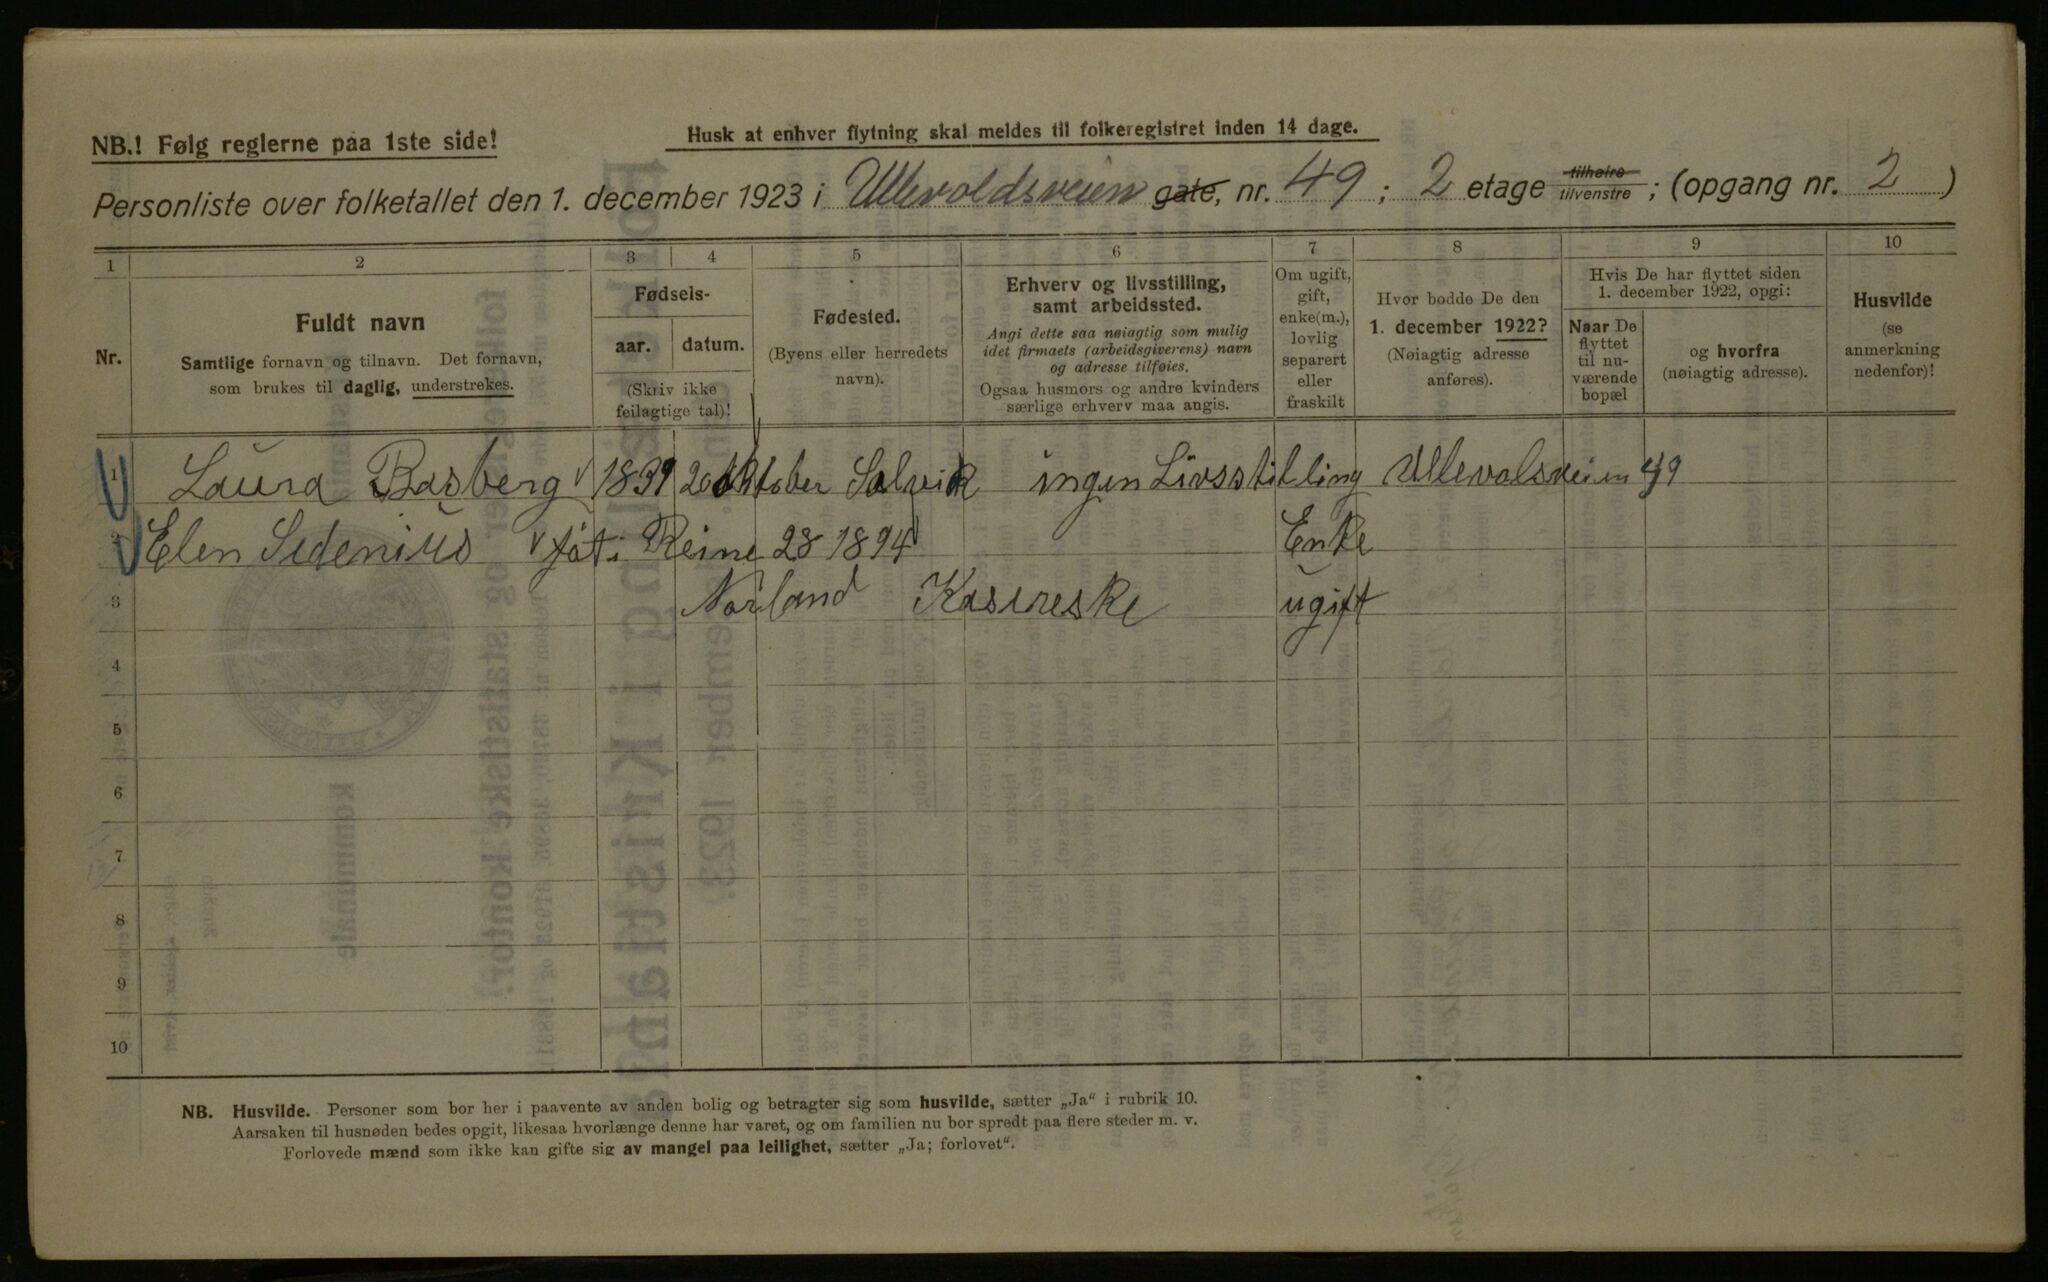 NB.! Følg reglerne paa 1ste side!
Husk at enhver flytning skal meldes til folkeregistret inden 14 dage.
Personliste over folketallet den 1. december 1923 i Ullevoldsveien gate, nr. 49; 2 etage tilhøire tilvenstre; (opgang nr. 2)
1 2 3 4 5 6 7 8 9 10
Nr.
Fuldt navn
Samtlige fornavn og tilnavn. Det fornavn,
som brukes til daglig, understrekes.
Fødsels-
aar. datum.
(Skriv ikke
feilagtige tal)!
Fødested.
(Byens eller herredets
navn).
Erhverv og livsstilling,
samt arbeidssted.
Angi dette saa nøiagtig som mulig
idet firmaets (arbeidsgiverens) navn
og adresse tilføies.
Ogsaa husmors og andre kvinders
særlige erhverv maa angis.
Om ugift,
gift,
enke(m.),
lovlig
separert
eller
fraskilt
Hvor bodde De den
1. december 1922?
(Nøiagtig adresse
anføres).
Hvis De har flyttet siden
1. december 1922, opgi:
Naar De
flyttet
til nu-
værende
bopæl
og hvorfra
(nøiagtig adresse).
Husvilde
(se
anmerkning
nedenfor)!
1 Laura Basberg 1839 20 oktober Salvik ingen Livsstilling Ullevalsveien 49
2 Elen Sidenius føt i Reine 28 1894 Enke
3 Norland Kasireske ugift
4
5
6
7
8
9
10
NB. Husvilde. Personer som bor her i paavente av anden bolig og betragter sig som husvilde, sætter „Ja“ i rubrik 10.
Aarsaken til husnøden bedes opgit, likesaa hvorlænge denne har varet, og om familien nu bor spredt paa flere steder m. v.
Forlovede mænd som ikke kan gifte sig av mangel paa leilighet, sætter „Ja; forlovet“.